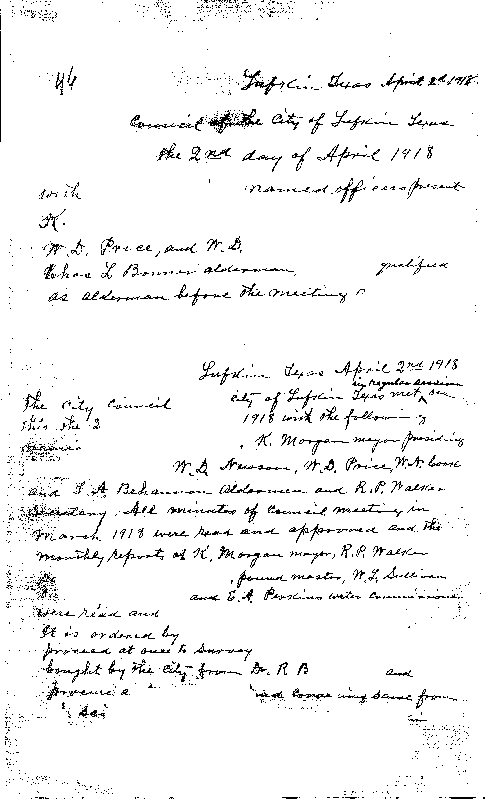 46 Lufkin Texas April 2d 1918.
Council of the City of Lufkin Texas
the 2nd day of April 1918
with named officers present
K.
W. D. Price, and W. D.
Chas L Bonner alderman, qualified
as alderman before the meeting
Lufkin Texas April 2nd 1918
in regular session
The City Council City of Lufkin Texas met, on
this the 2 1918 with the following
K. Morgan mayor presiding
W. D. Newsom, W. D. Price, W. N.
and Aldermen and R. P. Walker
Secretary. All minutes of Council meeting in
March 1918 were read and approved and the
monthly reports of K. Morgan mayor, R. P. Walker
, pound master, W. L. Sullivan
and E. A. Perkins water Commissioner
were read and
It is ordered by
proceed at once to survey
bought by the City from Dr. R B and
procure a same from